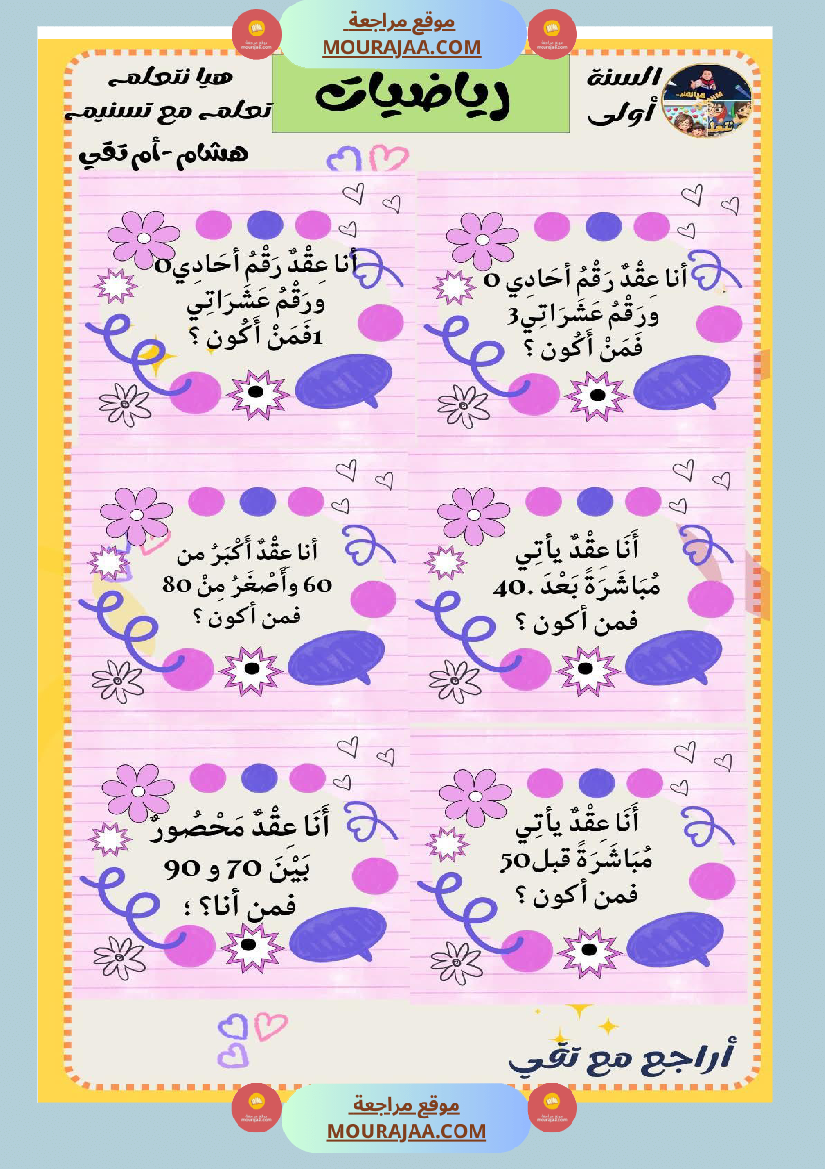 موقع مراجعة
MOURAJAA.COM
السنة
أولى
رياضيات
هيا نتعلمـ
تعلمـ مع تسنيمـ
هشام -أم تقي
أنا عِقْدٌ رَقْمُ أحَادِي 0
ورَقْمُ عَشَرَاتِي3
فَمَنْ أَكُون ؟
أنا عِقْدٌ رَقْمُ أحَادِي0
ورَقْمُ عَشَرَاتِي
1فَمَنْ أَكُون ؟
أَنَا عِقْدٌ يأتِي
مُبَاشَرَةً بَعْدَ .40
فمن أكون ؟
أنا عقْدٌ أَكْبَرُ من
60 وأَصْغَرُ مِنْ 80
فمن أكون ؟
أَنَا عِقْدٌ يأتِي
مُبَاشَرَةً قبل50
فمن أكون ؟
أَنَا عِقْدٌ مَحْصُورٌ
بَيْنَ 70 و 90
فمن أنا؟ ؛
أراجع مع تقي
موقع مراجعة
MOURAJAA.COM